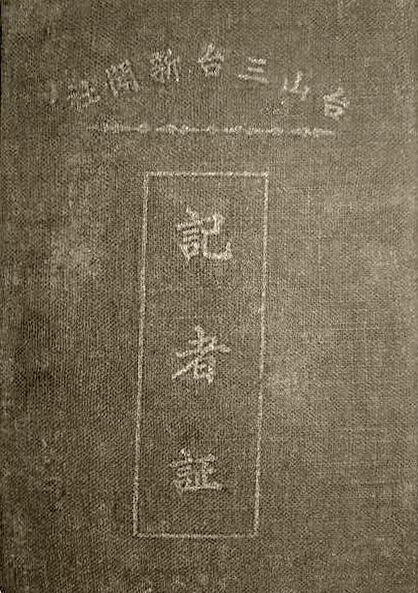 台山三台新聞社
記者証